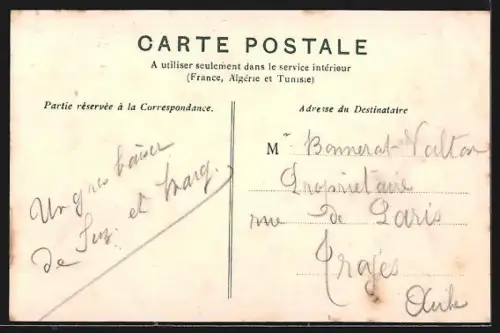 CARTE POSTALE
A utiliser seulement dans le service intérieur
(France, Algérie et Tunisie)
Partie réservée à la Correspondance.
Un gros baiser
de Suz. et Marg.
Adresse du Destinataire
Mr Bonnerat-Valton
Propriétaire
rue de Paris
Troyes
Aube